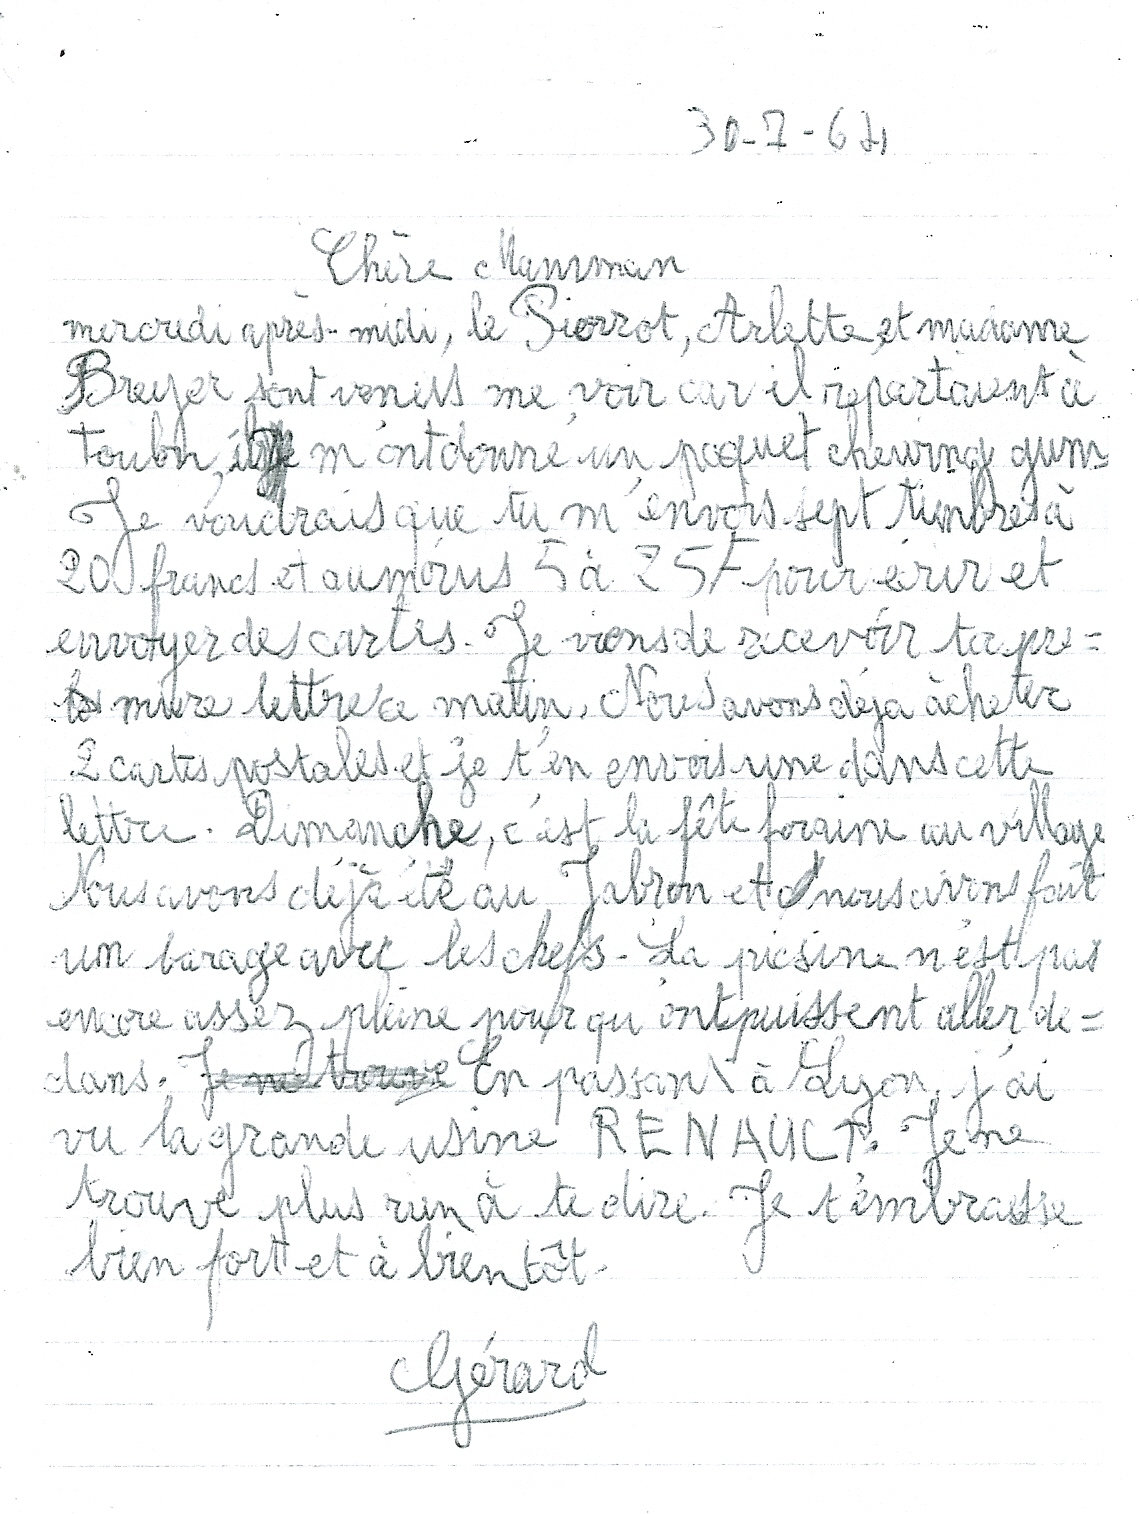 30-7-64
Chère Mamman
mercredi après-midi, le Pierrot, Arlette, et madame
Breyer sont venus me voir car il repartaient à
toulon, ils m'ont donné un paquet chewing gum
Je voudrais que tu m'envois sept timbres à
20 francs et au moins 5 à 25F pour érir et
envoyer des cartes. Je viens de recevoir ta pre=
mière lettre ce matin. Nous avons déja acheter
2 cartes postales et je t'en envois une dans cette
lettre. Dimanche, c'est la fête foraine au village
Nous avons déjà été au Jabron et nous avons fait
un barage avec les chefs. La picsine n'est pas
encore assez pleine pour qu'ont puissent aller de=
dans. Je ne trouve En passant à Lyon, j'ai
vu la grande usine RENAULT. Je ne
trouve plus rien à te dire. Je t'embrasse
bien fort et à bientôt.
Gérard